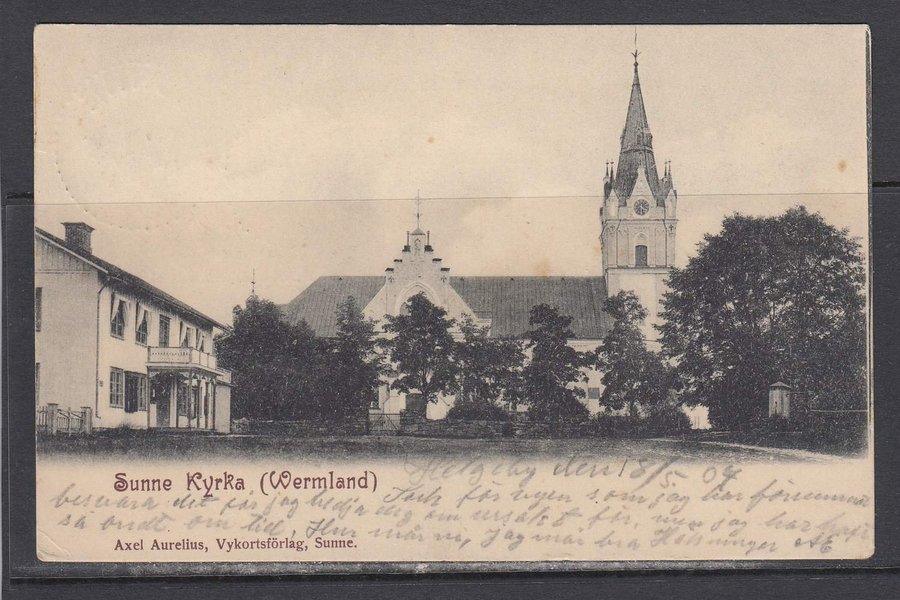 Helgeby den 18/5 04
Sunne Kyrka (Wermland)
Tack för vyen som jag har försummat
besvara det för jag bedja dig om ursäkt för, men jag har haft
så ondt om tid, Hur mår ni, jag mår bra Hälsningar
Axel Aurelius, Vykortsförlag, Sunne.